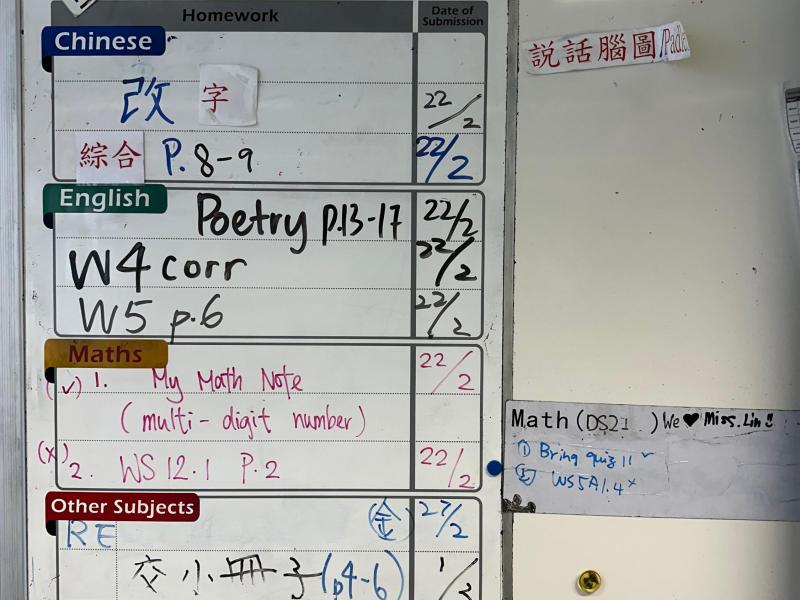 Homework
Date of Submission
Chinese
改 字 22/2
綜合 P. 8-9 22/2
English
Poetry p.13-17 22/2
W4 corr 22/2
W5 p.6 22/2
Maths
(✓) 1. My Math Note 22/2
(multi-digit number)
(x) 2. WS 12.1 P.2 22/2
Other Subjects
RE 金 27/2
交小冊子(p4-6) 1/3
說話腦圖/Padlet
Math (DS21 ) We ♥ Miss. Lin!!
① Bring quiz 11 ✓
② WS5A1.4 x